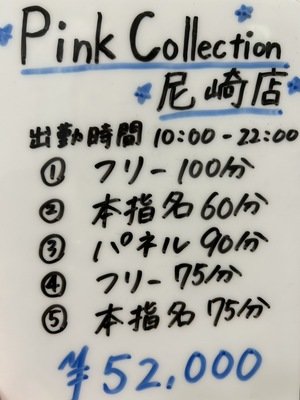 Pink Collection
尼崎店
出勤時間 10:00-22:00
① フリー 100分
② 本指名 60分
③ パネル 90分
④ フリー 75分
⑤ 本指名 75分
¥52,000